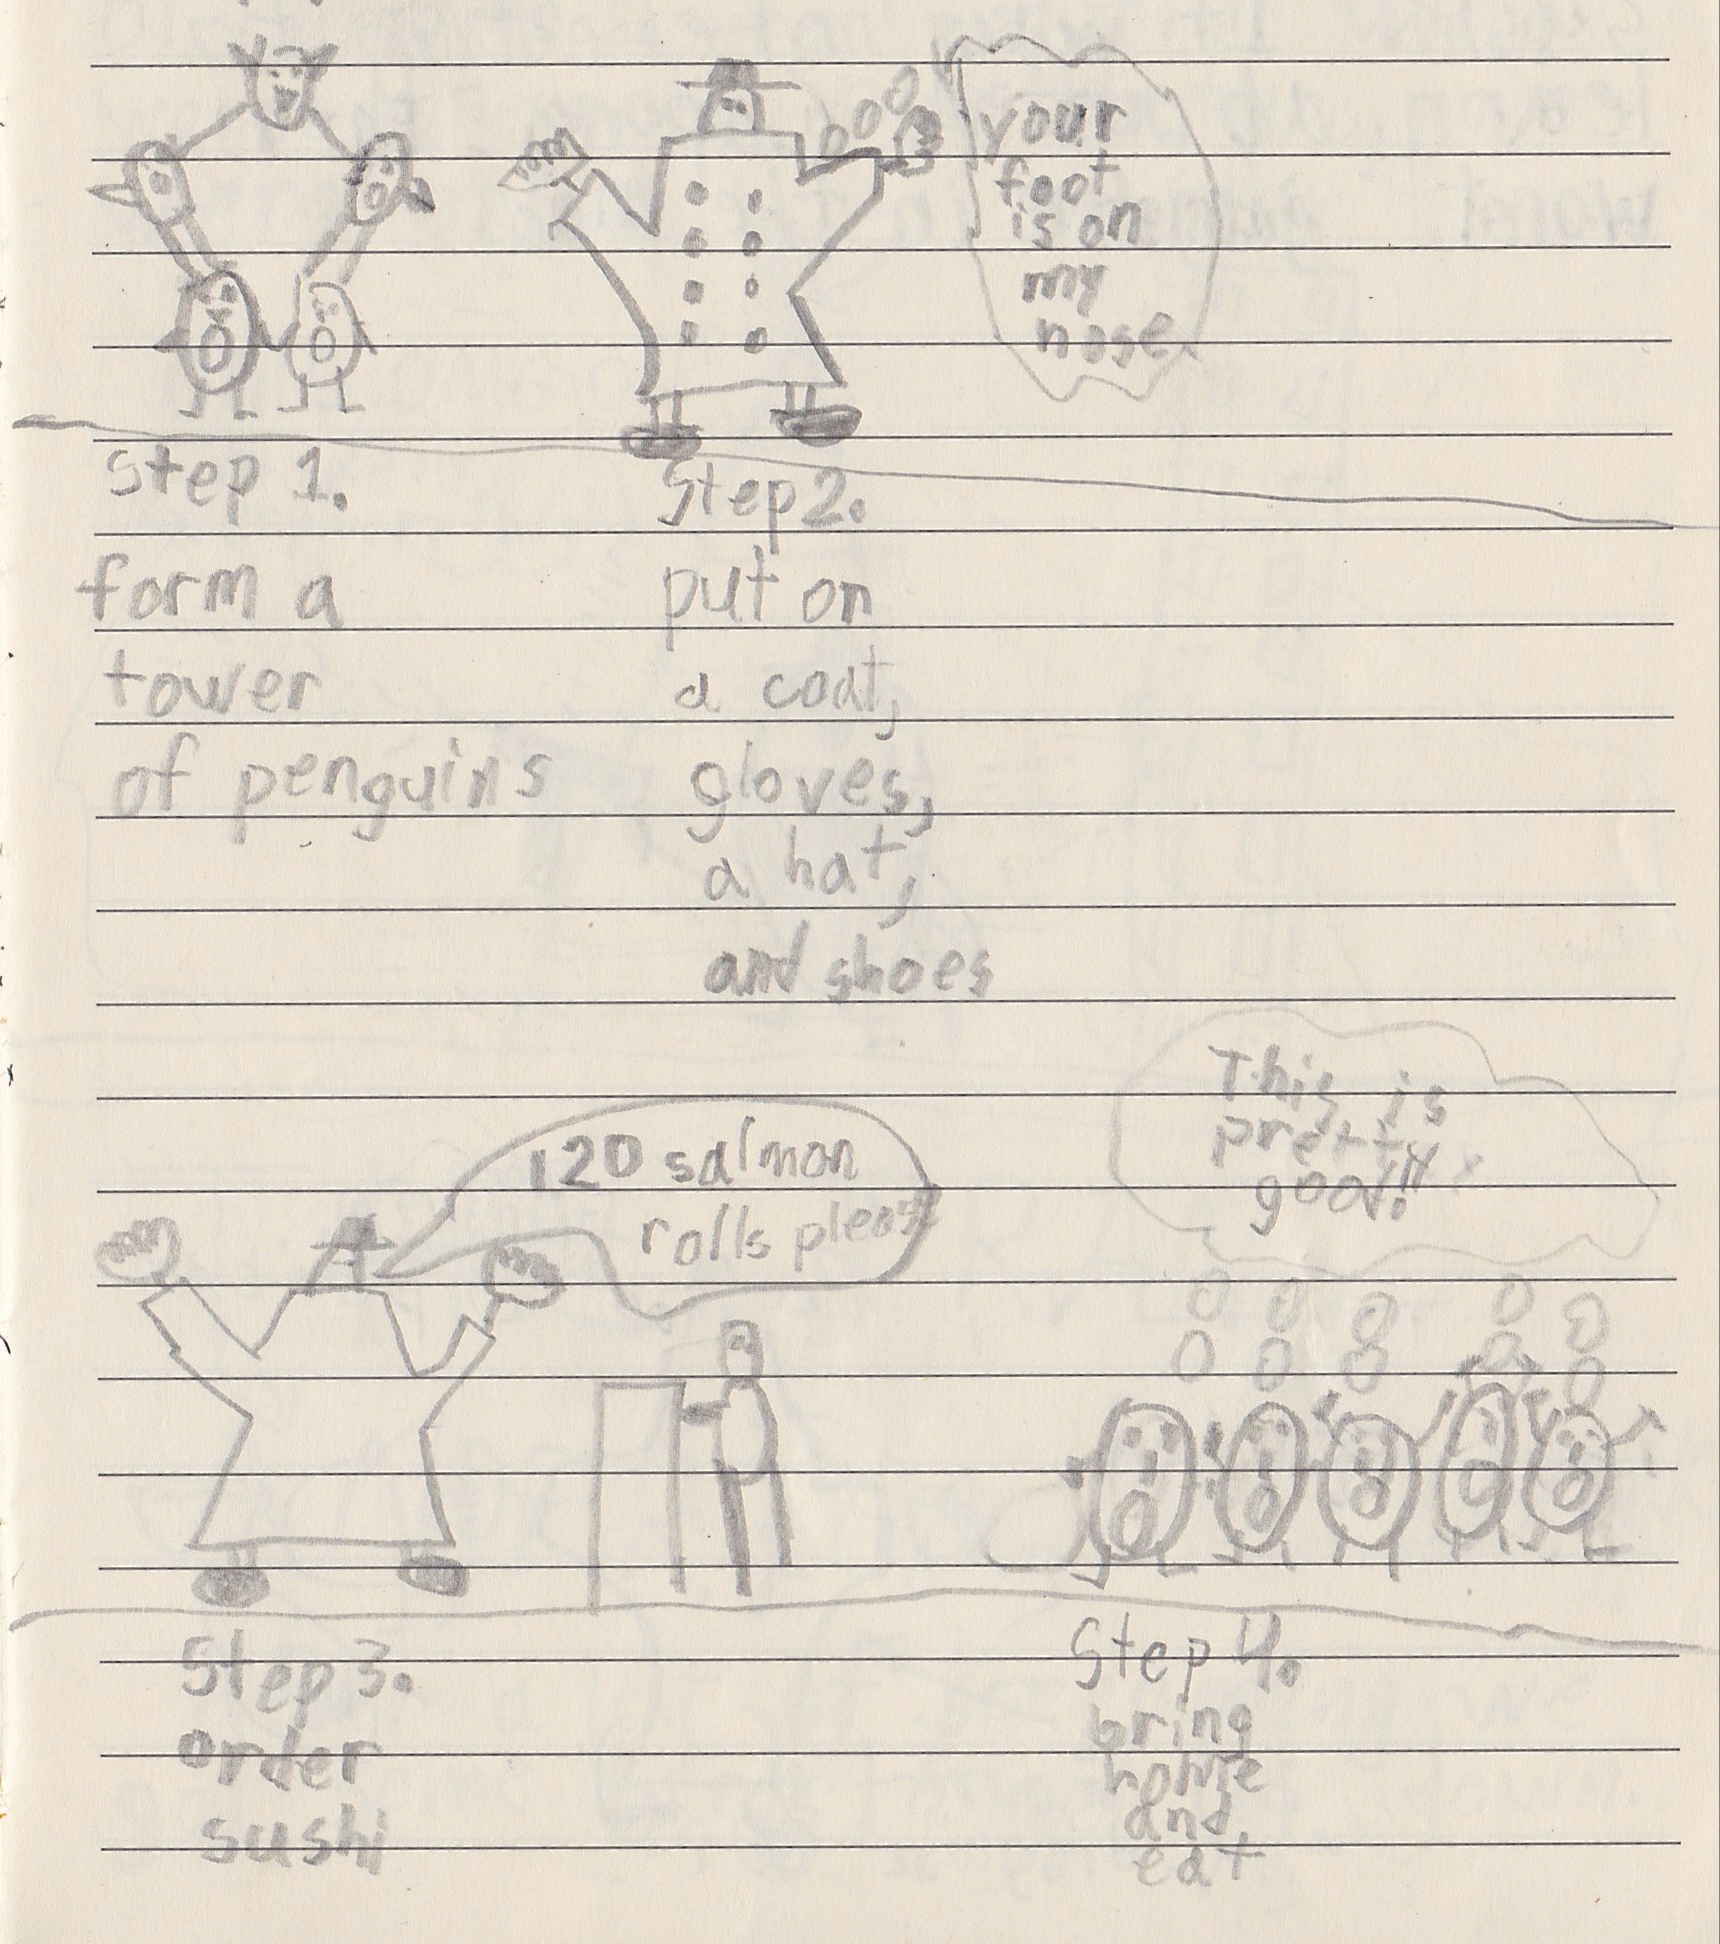 your
foot
is on
my
nose
step 1.
form a
tower
of penguins
Step 2.
put on
a coat,
gloves,
a hat,
and shoes
120 salmon
rolls please
This is
pretty
good!!
Step 3.
order
sushi
Step 4.
bring
home
and
eat